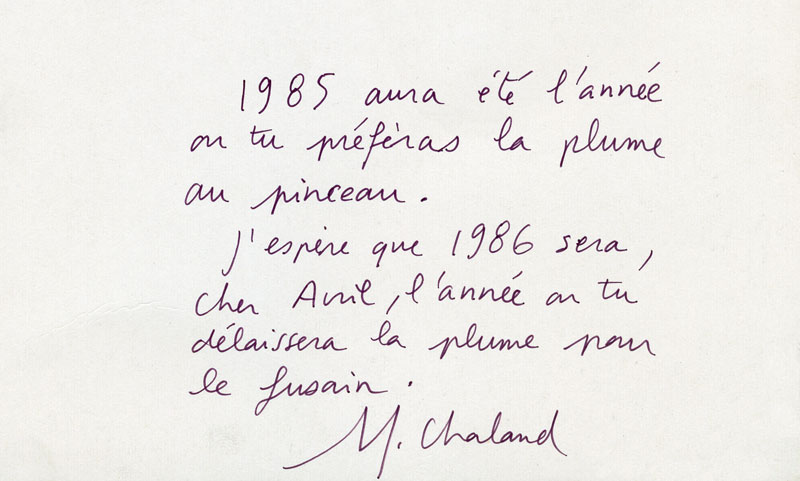 1985 aura été l'année
ou tu préféras la plume
au pinceau.
J'espère que 1986 sera,
cher Avril, l'année ou tu
délaissera la plume pour
le fusain.
M. Chaland